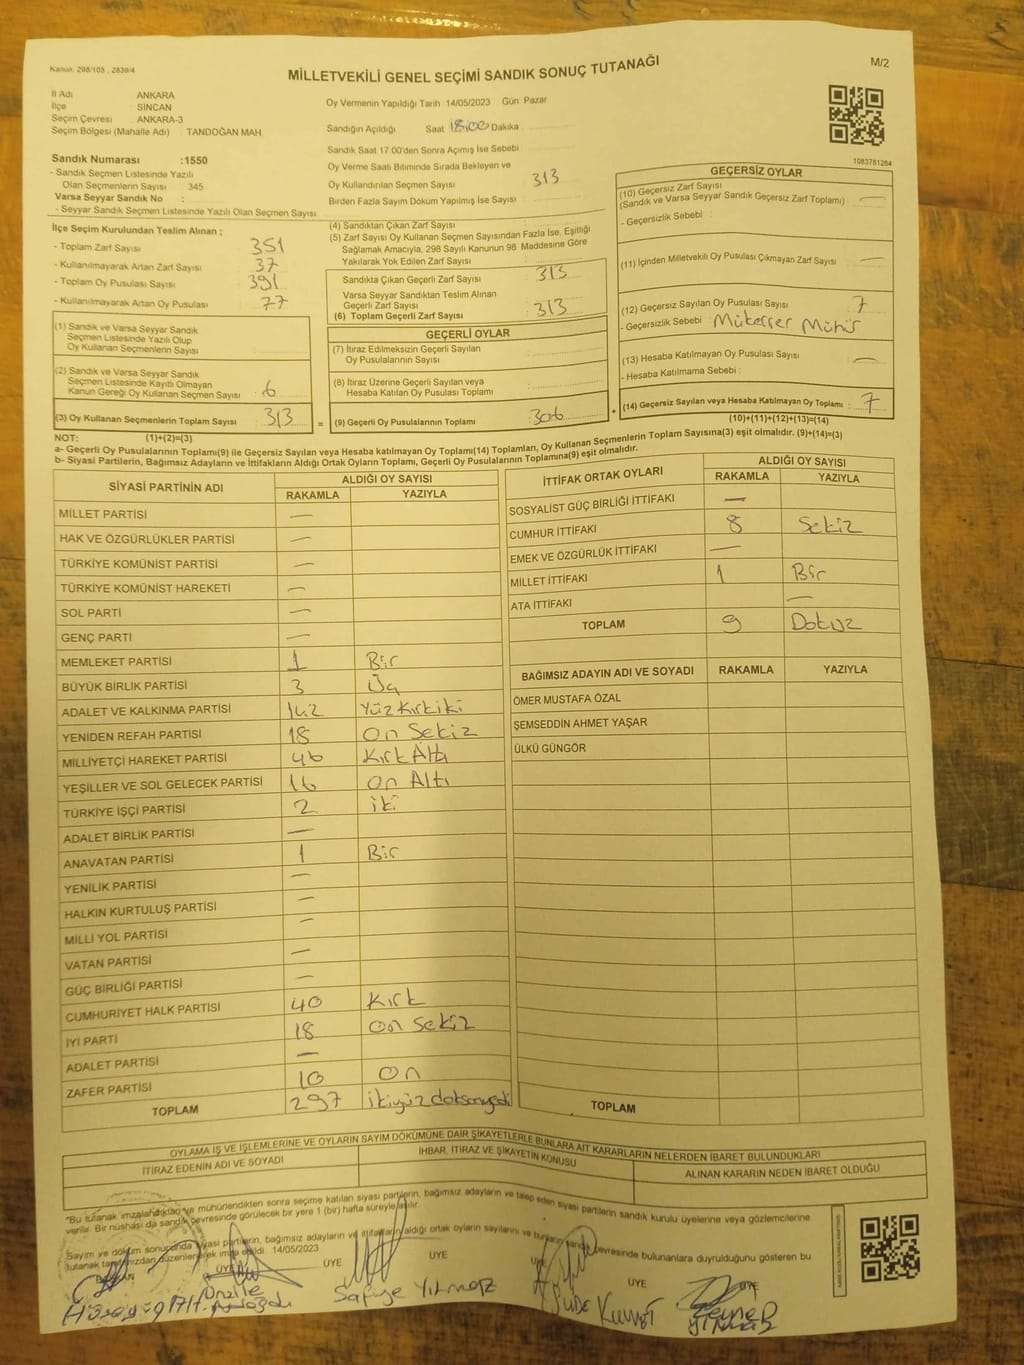 Kanun: 298/105 , 2839/4
MİLLETVEKİLİ GENEL SEÇİMİ SANDIK SONUÇ TUTANAĞI
M/2
İl Adı ANKARA
İlçe SİNCAN
Seçim Çevresi ANKARA-3
Seçim Bölgesi (Mahalle Adı) TANDOĞAN MAH.
Sandık Numarası :1550
- Sandık Seçmen Listesinde Yazılı
Olan Seçmenlerin Sayısı 345
Varsa Seyyar Sandık No :
- Seyyar Sandık Seçmen Listesinde Yazılı Olan Seçmen Sayısı
Oy Vermenin Yapıldığı Tarih 14/05/2023 Gün Pazar
Sandığın Açıldığı Saat 18:00 Dakika
Sandık Saat 17.00'den Sonra Açımış İse Sebebi
Oy Verme Saati Bitiminde Sırada Bekleyen ve
Oy Kullandırılan Seçmen Sayısı 313
Birden Fazla Sayım Döküm Yapılmış İse Sayısı
1083781264
İlçe Seçim Kurulundan Teslim Alınan ;
- Toplam Zarf Sayısı 351
- Kullanılmayarak Artan Zarf Sayısı 37
- Toplam Oy Pusulası Sayısı 391
- Kullanılmayarak Artan Oy Pusulası 77
(1) Sandık ve Varsa Seyyar Sandık
Seçmen Listesinde Yazılı Olup
Oy Kullanan Seçmenlerin Sayısı
(2) Sandık ve Varsa Seyyar Sandık
Seçmen Listesinde Kayıtlı Olmayan
Kanun Gereği Oy Kullanan Seçmen Sayısı : 6
(3) Oy Kullanan Seçmenlerin Toplam Sayısı 313
(4) Sandıktan Çıkan Zarf Sayısı
(5) Zarf Sayısı Oy Kullanan Seçmen Sayısından Fazla İse, Eşitliği
Sağlamak Amacıyla, 298 Sayılı Kanunun 98. Maddesine Göre
Yakılarak Yok Edilen Zarf Sayısı
Sandıkta Çıkan Geçerli Zarf Sayısı 313
Varsa Seyyar Sandıktan Teslim Alınan
Geçerli Zarf Sayısı
(6) Toplam Geçerli Zarf Sayısı 313
GEÇERLİ OYLAR
(7) İtiraz Edilmeksizin Geçerli Sayılan
Oy Pusulalarının Sayısı
(8) İtiraz Üzerine Geçerli Sayılan veya
Hesaba Katılan Oy Pusulası Toplamı
= (9) Geçerli Oy Pusulalarının Toplamı 306 +
GEÇERSİZ OYLAR
(10) Geçersiz Zarf Sayısı
(Sandık ve Varsa Seyyar Sandık Geçersiz Zarf Toplamı) —
- Geçersizlik Sebebi :
(11) İçinden Milletvekili Oy Pusulası Çıkmayan Zarf Sayısı —
(12) Geçersiz Sayılan Oy Pusulası Sayısı 7
- Geçersizlik Sebebi : Mükerrer Mühür
(13) Hesaba Katılmayan Oy Pusulası Sayısı —
- Hesaba Katılmama Sebebi :
(14) Geçersiz Sayılan veya Hesaba Katılmayan Oy Toplamı 7
(10)+(11)+(12)+(13)=(14)
NOT: (1)+(2)=(3)
a- Geçerli Oy Pusulalarının Toplamı(9) ile Geçersiz Sayılan veya Hesaba katılmayan Oy Toplamı(14) Toplamları, Oy Kullanan Seçmenlerin Toplam Sayısına(3) eşit olmalıdır. (9)+(14)=(3)
b- Siyasi Partilerin, Bağımsız Adayların ve İttifakların Aldığı Ortak Oyların Toplamı, Geçerli Oy Pusulalarının Toplamına(9) eşit olmalıdır.
SİYASİ PARTİNİN ADI ALDIĞI OY SAYISI
RAKAMLA YAZIYLA
MİLLET PARTİSİ —
HAK VE ÖZGÜRLÜKLER PARTİSİ —
TÜRKİYE KOMÜNİST PARTİSİ —
TÜRKİYE KOMÜNİST HAREKETİ —
SOL PARTİ —
GENÇ PARTİ —
MEMLEKET PARTİSİ 1 Bir
BÜYÜK BİRLİK PARTİSİ 3 Üç
ADALET VE KALKINMA PARTİSİ 142 Yüz Kırk iki
YENİDEN REFAH PARTİSİ 18 On Sekiz
MİLLİYETÇİ HAREKET PARTİSİ 46 Kırk Altı
YEŞİLLER VE SOL GELECEK PARTİSİ 16 On Altı
TÜRKİYE İŞÇİ PARTİSİ 2 iki
ADALET BİRLİK PARTİSİ —
ANAVATAN PARTİSİ 1 Bir
YENİLİK PARTİSİ —
HALKIN KURTULUŞ PARTİSİ —
MİLLİ YOL PARTİSİ —
VATAN PARTİSİ —
GÜÇ BİRLİĞİ PARTİSİ —
CUMHURİYET HALK PARTİSİ 40 Kırk
İYİ PARTİ 18 On Sekiz
ADALET PARTİSİ —
ZAFER PARTİSİ 10 On
TOPLAM 297 ikiyüz doksanyedi
İTTİFAK ORTAK OYLARI ALDIĞI OY SAYISI
RAKAMLA YAZIYLA
SOSYALİST GÜÇ BİRLİĞİ İTTİFAKI —
CUMHUR İTTİFAKI 8 Sekiz
EMEK VE ÖZGÜRLÜK İTTİFAKI —
MİLLET İTTİFAKI 1 Bir
ATA İTTİFAKI —
TOPLAM 9 Dokuz
BAĞIMSIZ ADAYIN ADI VE SOYADI RAKAMLA YAZIYLA
ÖMER MUSTAFA ÖZAL
ŞEMSEDDİN AHMET YAŞAR
ÜLKÜ GÜNGÖR
TOPLAM
OYLAMA İŞ VE İŞLEMLERİNE VE OYLARIN SAYIM DÖKÜMÜNE DAİR ŞİKAYETLERLE BUNLARA AİT KARARLARIN NELERDEN İBARET BULUNDUKLARI
İTİRAZ EDENİN ADI VE SOYADI İHBAR, İTİRAZ VE ŞİKAYETİN KONUSU ALINAN KARARIN NEDEN İBARET OLDUĞU
"Bu tutanak imzalandıktan ve mühürlendikten sonra seçime katılan siyasi partilerin, bağımsız adayların ve talep eden siyasi partilerin sandık kurulu üyelerine veya gözlemcilerine
verilir. Bir nüshası da sandık çevresinde görülecek bir yere 1 (bir) hafta süreyle asılır.
Sayım ve döküm sonucunda siyasi partilerin, bağımsız adayların ve ittifakların aldığı ortak oyların sayılarını ve bunların sandık çevresinde bulunanlara duyrulduğunu gösteren bu
tutanak tarafımızdan düzenlenerek imza edildi. 14/05/2023
BAŞKAN ÜYE ÜYE ÜYE ÜYE ÜYE
Safiye Yılmaz
Zeynep